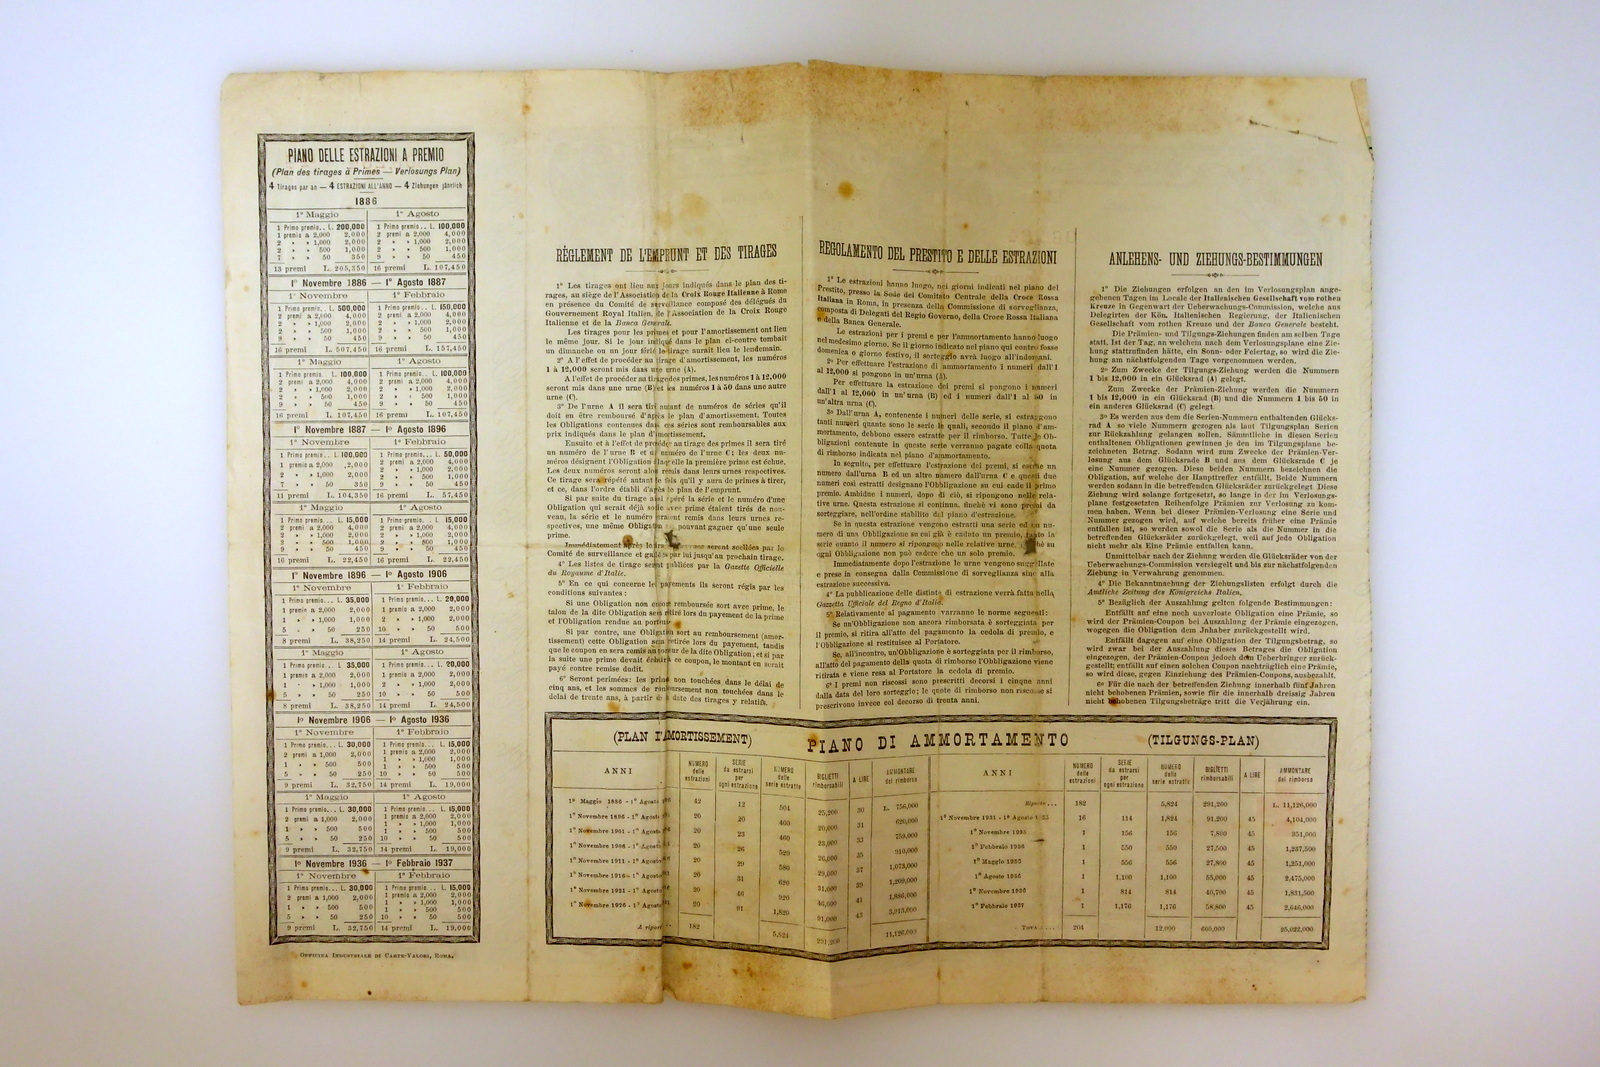 PIANO DELLE ESTRAZIONI A PREMIO
(Plan des tirages à Primes — Verlosungs Plan)
4 Tirages par an — 4 ESTRAZIONI ALL'ANNO — 4 Ziehungen jährlich
1886
1º Maggio
1 Primo premio.. L. 200,000
1 premio a 2,000 2,000
2 » » 1,000 2,000
2 » » 500 1,000
7 » » 50 350
13 premi L. 205,350
1º Agosto
1 Primo premio... L. 100,000
2 premi a 2,000 4,000
2 » » 1,000 2,000
2 » » 500 1,000
9 » » 50 450
16 premi L. 107,450
1º Novembre 1886 — 1º Agosto 1887
1º Novembre
1 Primo premio... L. 500,000
2 premi a 2,000 4,000
2 » » 1,000 2,000
2 » » 500 1,000
9 » » 50 450
16 premi L. 507,450
1º Febbraio
1 Primo premio... L. 150,000
2 premi a 2,000 4,000
2 » » 1,000 2,000
2 » » 500 1,000
9 » » 50 450
16 premi L. 157,450
1º Maggio
1 Primo premio. L. 100,000
2 premi a 2,000 4,000
2 » » 1,000 2,000
2 » » 500 1,000
9 » » 50 450
16 premi L. 107,450
1º Agosto
1 Primo premio... L. 100,000
2 premi a 2,000 4,000
2 » » 1,000 2,000
2 » » 500 1,000
9 » » 50 450
16 premi L. 107,450
1º Novembre 1887 — 1º Agosto 1896
1º Novembre
1 Primo premio L. 100,000
1 premio a 2,000 2,000
2 » » 1,000 2,000
7 » » 50 350
11 premi L. 104,350
1º Febbraio
1 Primo premio... L. 50,000
2 premi a 2,000 4,000
2 » » 1,000 2,000
2 » » 500 1,000
9 » » 50 450
16 premi L. 57,450
1º Maggio
1 Primo premio... L. 15,000
2 premi a 2,000 4,000
2 » » 1,000 2,000
2 » » 500 1,000
9 » » 50 450
16 premi L. 22,450
1º Agosto
1 Primo premio... L. 15,000
2 premi a 2,000 4,000
2 » » 1,000 2,000
2 » » 500 1,000
9 » » 50 450
16 premi L. 22,450
1º Novembre 1896 — 1º Agosto 1906
1º Novembre
1 Primo premio... L. 35,000
1 premio a 2,000 2,000
1 » » 1,000 1,000
5 » » 50 250
8 premi L. 38,250
1º Febbraio
1 Primo premio... L. 20,000
1 premio a 2,000 2,000
2 » » 1,000 2,000
10 » » 50 500
14 premi L. 24,500
1º Maggio
1 Primo premio.. L. 35,000
1 premio a 2,000 2,000
1 » » 1,000 1,000
5 » » 50 250
8 premi L. 38,250
1º Agosto
1 Primo premio... L. 20,000
1 premio a 2,000 2,000
2 » » 1,000 2,000
10 » » 50 500
14 premi L. 24,500
1º Novembre 1906 — 1º Agosto 1936
1º Novembre
1 Primo premio... L. 30,000
2 premi a 1,000 2,000
1 » » 500 500
5 » » 50 250
9 premi L. 32,750
1º Febbraio
1 Primo premio... L. 15,000
1 premio a 2,000 2,000
1 » » 1,000 1,000
1 » » 500 500
10 » » 50 500
14 premi L. 19,000
1º Maggio
1 Primo premio... L. 30,000
2 premi a 1,000 2,000
1 » » 500 500
5 » » 50 250
9 premi L. 32,750
1º Agosto
1 Primo premio... L. 15,000
1 premio a 2,000 2,000
1 » » 1,000 1,000
1 » » 500 500
10 » » 50 500
14 premi L. 19,000
1º Novembre 1936 — 1º Febbraio 1937
1º Novembre
1 Primo premio... L. 30,000
2 premi a 1,000 2,000
1 » » 500 500
5 » » 50 250
9 premi L. 32,750
1º Febbraio
1 Primo premio... L. 15,000
1 premio a 2,000 2,000
1 » » 1,000 1,000
1 » » 500 500
10 » » 50 500
14 premi L. 19,000
OFFICINA INDUSTRIALE DI CARTE-VALORI, ROMA.
RÈGLEMENT DE L'EMPRUNT ET DES TIRAGES
1º Les tirages ont lieu aux jours indiqués dans le plan des ti-
rages, au siège de l'Association de la Croix Rouge Italienne à Rome
en présence du Comité de surveillance composé des délégués du
Gouvernement Royal Italien, de l'Association de la Croix Rouge
Italienne et de la Banca Generale.
Les tirages pour les primes et pour l'amortissement ont lieu
le même jour. Si le jour indiqué dans le plan ci-contre tombait
un dimanche ou un jour férié le tirage aurait lieu le lendemain.
2º A l'effet de procéder au tirage d'amortissement, les numéros
1 à 12,000 seront mis dans une urne (A).
A l'effet de procéder au tirage des primes, les numéros 1 à 12,000
seront mis dans une urne (B) et les numéros 1 à 50 dans une autre
urne (C).
3º De l'urne A il sera tiré autant de numéros de séries qu'il
doit en être remboursé d'après le plan d'amortissement. Toutes
les Obligations contenues dans ces séries sont remboursables aux
prix indiqués dans le plan d'amortissement.
Ensuite et à l'effet de procéder au tirage des primes il sera tiré
un numéro de l'urne B et un numéro de l'urne C; les deux nu-
méros désignent l'Obligation à laquelle la première prime est échue.
Les deux numéros seront alors remis dans leurs urnes respectives.
Ce tirage sera répété autant de fois qu'il y aura de primes à tirer,
et ce, dans l'ordre établi d'après le plan de l'emprunt.
Si par suite du tirage ainsi opéré la série et le numéro d'une
Obligation qui serait déjà sortie avec prime étaient tirés de nou-
veau, la série et le numéro seraient remis dans leurs urnes re-
spectives, une même Obligation ne pouvant gagner qu'une seule
prime.
Immédiatement après le tirage les urnes seront scellées par le
Comité de surveillance et gardées par lui jusqu'au prochain tirage.
4º Les listes de tirage seront publiées par la Gazette Officielle
du Royaume d'Italie.
5º En ce qui concerne les payements ils seront régis par les
conditions suivantes :
Si une Obligation non encore remboursée sort avec prime, le
talon de la dite Obligation sera retiré lors du payement de la prime
et l'Obligation rendue au porteur.
Si par contre, une Obligation sort au remboursement (amor-
tissement) cette Obligation sera retirée lors du payement, tandis
que le coupon en sera remis au porteur de la dite Obligation, et si par
la suite une prime devait échoir à ce coupon, le montant en serait
payé contre remise dudit.
6º Seront perimées: les primes non touchées dans le délai de
cinq ans, et les sommes de remboursement non touchées dans le
délai de trente ans, à partir de la date des tirages y relatifs.
REGOLAMENTO DEL PRESTITO E DELLE ESTRAZIONI
1º Le estrazioni hanno luogo, nei giorni indicati nel piano del
Prestito, presso la Sede del Comitato Centrale della Croce Rossa
Italiana in Roma, in presenza della Commissione di sorveglianza,
composta di Delegati del Regio Governo, della Croce Rossa Italiana
e della Banca Generale.
Le estrazioni per i premi e per l'ammortamento hanno luogo
nel medesimo giorno. Se il giorno indicato nel piano qui contro fosse
domenica o giorno festivo, il sorteggio avrà luogo all'indomani.
2º Per effettuare l'estrazione di ammortamento i numeri dall'1
al 12,000 si pongono in un'urna (A).
Per effettuare la estrazione dei premi si pongono i numeri
dall'1 al 12,000 in un'urna (B) ed i numeri dall'1 al 50 in
un'altra urna (C).
3º Dall'urna A, contenente i numeri delle serie, si estraggono
tanti numeri quante sono le serie le quali, secondo il piano d'am-
mortamento, debbono essere estratte per il rimborso. Tutte le Ob-
bligazioni contenute in queste serie verranno pagate colla quota
di rimborso indicata nel piano d'ammortamento.
In seguito, per effettuare l'estrazione dei premi, si estrae un
numero dall'urna B ed un altro numero dall'urna C e questi due
numeri così estratti designano l'Obbligazione su cui cade il primo
premio. Ambidue i numeri, dopo di ciò, si ripongono nelle rela-
tive urne. Questa estrazione si continua, finchè vi sono premi da
sorteggiare, nell'ordine stabilito dal piano d'estrazione.
Se in questa estrazione vengono estratti una serie ed un nu-
mero di una Obbligazione su cui già è caduto un premio, tanto la
serie quanto il numero si ripongono nelle relative urne, perchè su
ogni Obbligazione non può cadere che un solo premio.
Immediatamente dopo l'estrazione le urne vengono suggellate
e prese in consegna dalla Commissione di sorveglianza sino alla
estrazione successiva.
4º La pubblicazione delle distinte di estrazione verrà fatta nella
Gazzetta Ufficiale del Regno d'Italia.
5º Relativamente al pagamento varranno le norme seguenti:
Se un'Obbligazione non ancora rimborsata è sorteggiata per
il premio, si ritira all'atto del pagamento la cedola di premio, e
l'Obbligazione si restituisce al Portatore.
Se, all'incontro, un'Obbligazione è sorteggiata per il rimborso,
all'atto del pagamento della quota di rimborso l'Obbligazione viene
ritirata e viene resa al Portatore la cedola di premio.
6º I premi non riscossi sono prescritti decorsi i cinque anni
dalla data del loro sorteggio; le quote di rimborso non riscosse si
prescrivono invece col decorso di trenta anni.
ANLEHENS- UND ZIEHUNGS-BESTIMMUNGEN
1º Die Ziehungen erfolgen an den im Verlosungsplan ange-
gebenen Tagen im Locale der Italienischen Gesellschaft vom rothen
Kreuze in Gegenwart der Ueberwachungs-Commission, welche aus
Delegirten der Kön. Italienischen Regierung, der Italienischen
Gesellschaft vom rothen Kreuze und der Banca Generale besteht.
Die Prämien- und Tilgungs-Ziehung finden am selben Tage
statt. Ist der Tag, an welchem nach dem Verlosungsplane eine Zie-
hung stattzufinden hätte, ein Sonn- oder Feiertag, so wird die Zie-
hung am nächstfolgenden Tage vorgenommen werden.
2º Zum Zwecke der Tilgungs-Ziehung werden die Nummern
1 bis 12,000 in ein Glücksrad (A) gelegt.
Zum Zwecke der Prämien-Ziehung werden die Nummern
1 bis 12,000 in ein Glücksrad (B) und die Nummern 1 bis 50 in
ein anderes Glücksrad (C) gelegt.
3º Es werden aus dem die Serien-Nummern enthaltenden Glücks-
rad A so viele Nummern gezogen als laut Tilgungsplan Serien
zur Rückzahlung gelangen sollen. Sämmtliche in diesen Serien
enthaltenen Obligationen gewinnen je den im Tilgungsplane be-
zeichneten Betrag. Sodann wird zum Zwecke der Prämien-Ver-
losung aus dem Glücksrade B und aus dem Glücksrade C je
eine Nummer gezogen. Diese beiden Nummern bezeichnen die
Obligation, auf welche der Haupttreffer entfällt. Beide Nummern
werden sodann in die betreffenden Glücksräder zurückgelegt Diese
Ziehung wird solange fortgesetzt, so lange in der im Verlosungs-
plane festgesetzten Reihenfolge Prämien zur Verlosung zu kom-
men haben. Wenn bei dieser Prämien-Verlosung eine Serie und
Nummer gezogen wird, auf welche bereits früher eine Prämie
entfallen ist, so werden sowol die Serie als die Nummer in die
betreffenden Glücksräder zurückgelegt, weil auf jede Obligation
nicht mehr als Eine Prämie entfallen kann.
Unmittelbar nach der Ziehung werden die Glücksräder von der
Ueberwachungs-Commission versiegelt und bis zur nächstfolgenden
Ziehung in Verwahrung genommen.
4º Die Bekanntmachung der Ziehungslisten erfolgt durch die
Amtliche Zeitung des Königreichs Italien.
5º Bezüglich der Auszahlung gelten folgende Bestimmungen:
Entfällt auf eine noch unverloste Obligation eine Prämie, so
wird der Prämien-Coupon bei Auszahlung der Prämie eingezogen,
wogegen die Obligation dem Inhaber zurückgestellt wird.
Entfällt dagegen auf eine Obligation der Tilgungsbetrag, so
wird zwar bei der Auszahlung dieses Betrages die Obligation
eingezogen, der Prämien-Coupon jedoch dem Ueberbringer zurück-
gestellt; entfällt auf einen solchen Coupon nachträglich eine Prämie,
so wird diese, gegen Einziehung des Prämien-Coupons, ausbezahlt.
6º Für die nach der betreffenden Ziehung innerhalb fünf Jahren
nicht behobenen Prämien, sowie für die innerhalb dreissig Jahren
nicht behobenen Tilgungsbeträge tritt die Verjährung ein.
(PLAN D'AMORTISSEMENT) PIANO DI AMMORTAMENTO (TILGUNGS-PLAN)
ANNI NUMERO delle estrazioni SERIE da estrarsi per ogni estrazione NUMERO delle serie estratte BIGLIETTI rimborsabili A LIRE AMMONTARE del rimborso
1º Maggio 1886 - 1º Agosto 42 12 504 25,200 30 L. 756,000
1º Novembre 1896 - 1º Agosto 20 20 400 20,000 31 620,000
1º Novembre 1901 - 1º Agosto 20 23 460 23,000 33 759,000
1º Novembre 1906 - 1º Agosto 20 26 520 26,000 35 910,000
1º Novembre 1911 - 1º Agosto 20 29 580 29,000 37 1,073,000
1º Novembre 1916 - 1º Agosto 20 31 620 31,000 39 1,209,000
1º Novembre 1921 - 1º Agosto 20 46 920 46,000 41 1,886,000
1º Novembre 1926 - 1º Agosto 20 91 1,820 91,000 43 3,913,000
A riportare 182 5,824 291,200 11,126,000
ANNI NUMERO delle estrazioni SERIE da estrarsi per ogni estrazione NUMERO delle serie estratte BIGLIETTI rimborsabili A LIRE AMMONTARE del rimborso
Riporto... 182 5,824 291,200 L. 11,126,000
1º Novembre 1931 - 1º Agosto 16 114 1,824 91,200 45 4,104,000
1º Novembre 1935 1 156 156 7,800 45 351,000
1º Febbraio 1936 1 550 550 27,500 45 1,237,500
1º Maggio 1936 1 556 556 27,800 45 1,251,000
1º Agosto 1936 1 1,100 1,100 55,000 45 2,475,000
1º Novembre 1936 1 814 814 40,700 45 1,831,500
1º Febbraio 1937 1 1,176 1,176 58,800 45 2,646,000
204 12,000 600,000 25,022,000